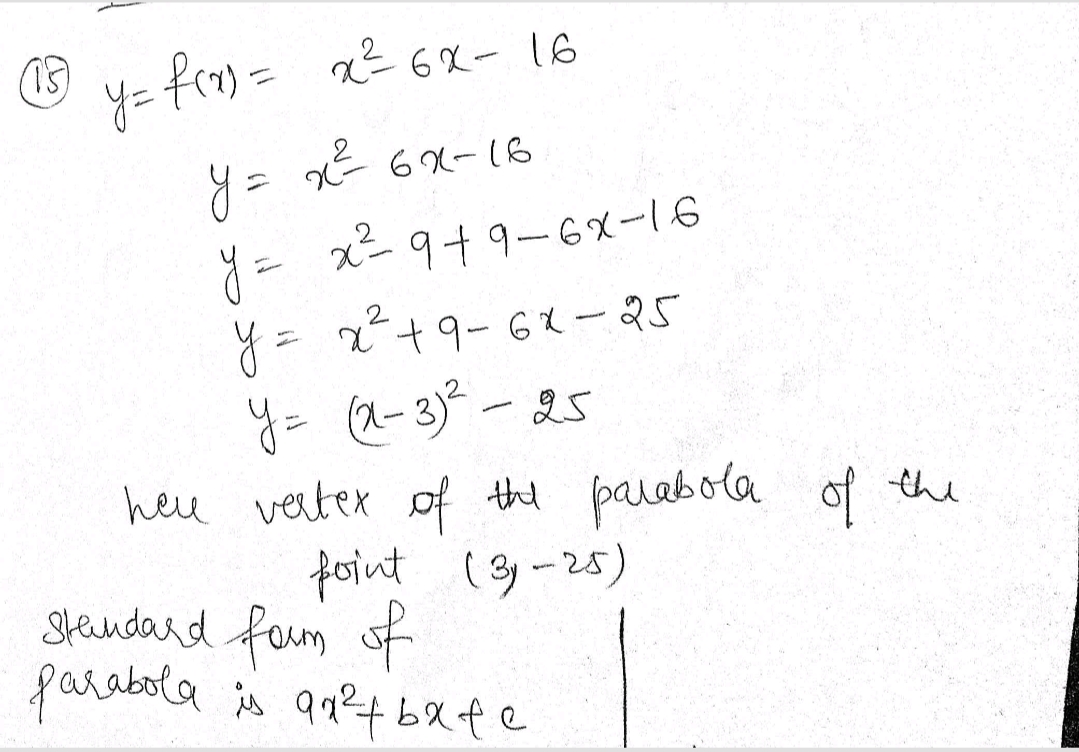 (15) y = f(x) = x² - 6x - 16
y = x² - 6x - 16
y = x² - 9 + 9 - 6x - 16
y = x² + 9 - 6x - 25
y = (x-3)² - 25
here vertex of the parabola of the
point (3, -25)
standard form of
parabola is ax² + bx + c